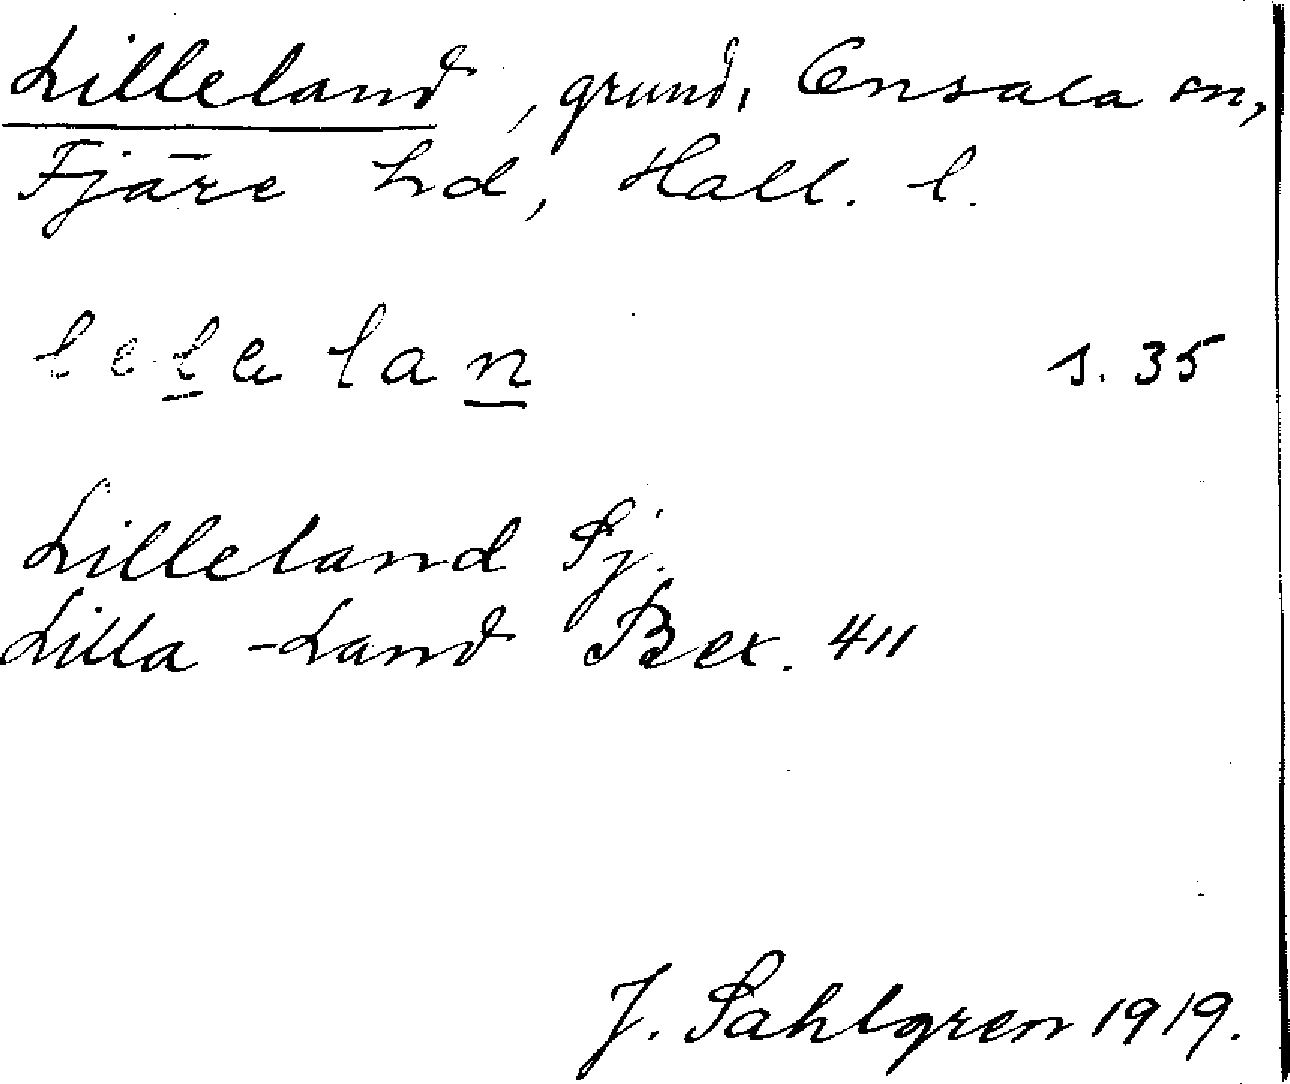 Lilleland, grund, Onsala sn,
Fjäre hd, Hall. l.
lelelan s. 35
Lilleland Sj.
Lilla-Land Bex. 411
J. Sahlgren 1919.